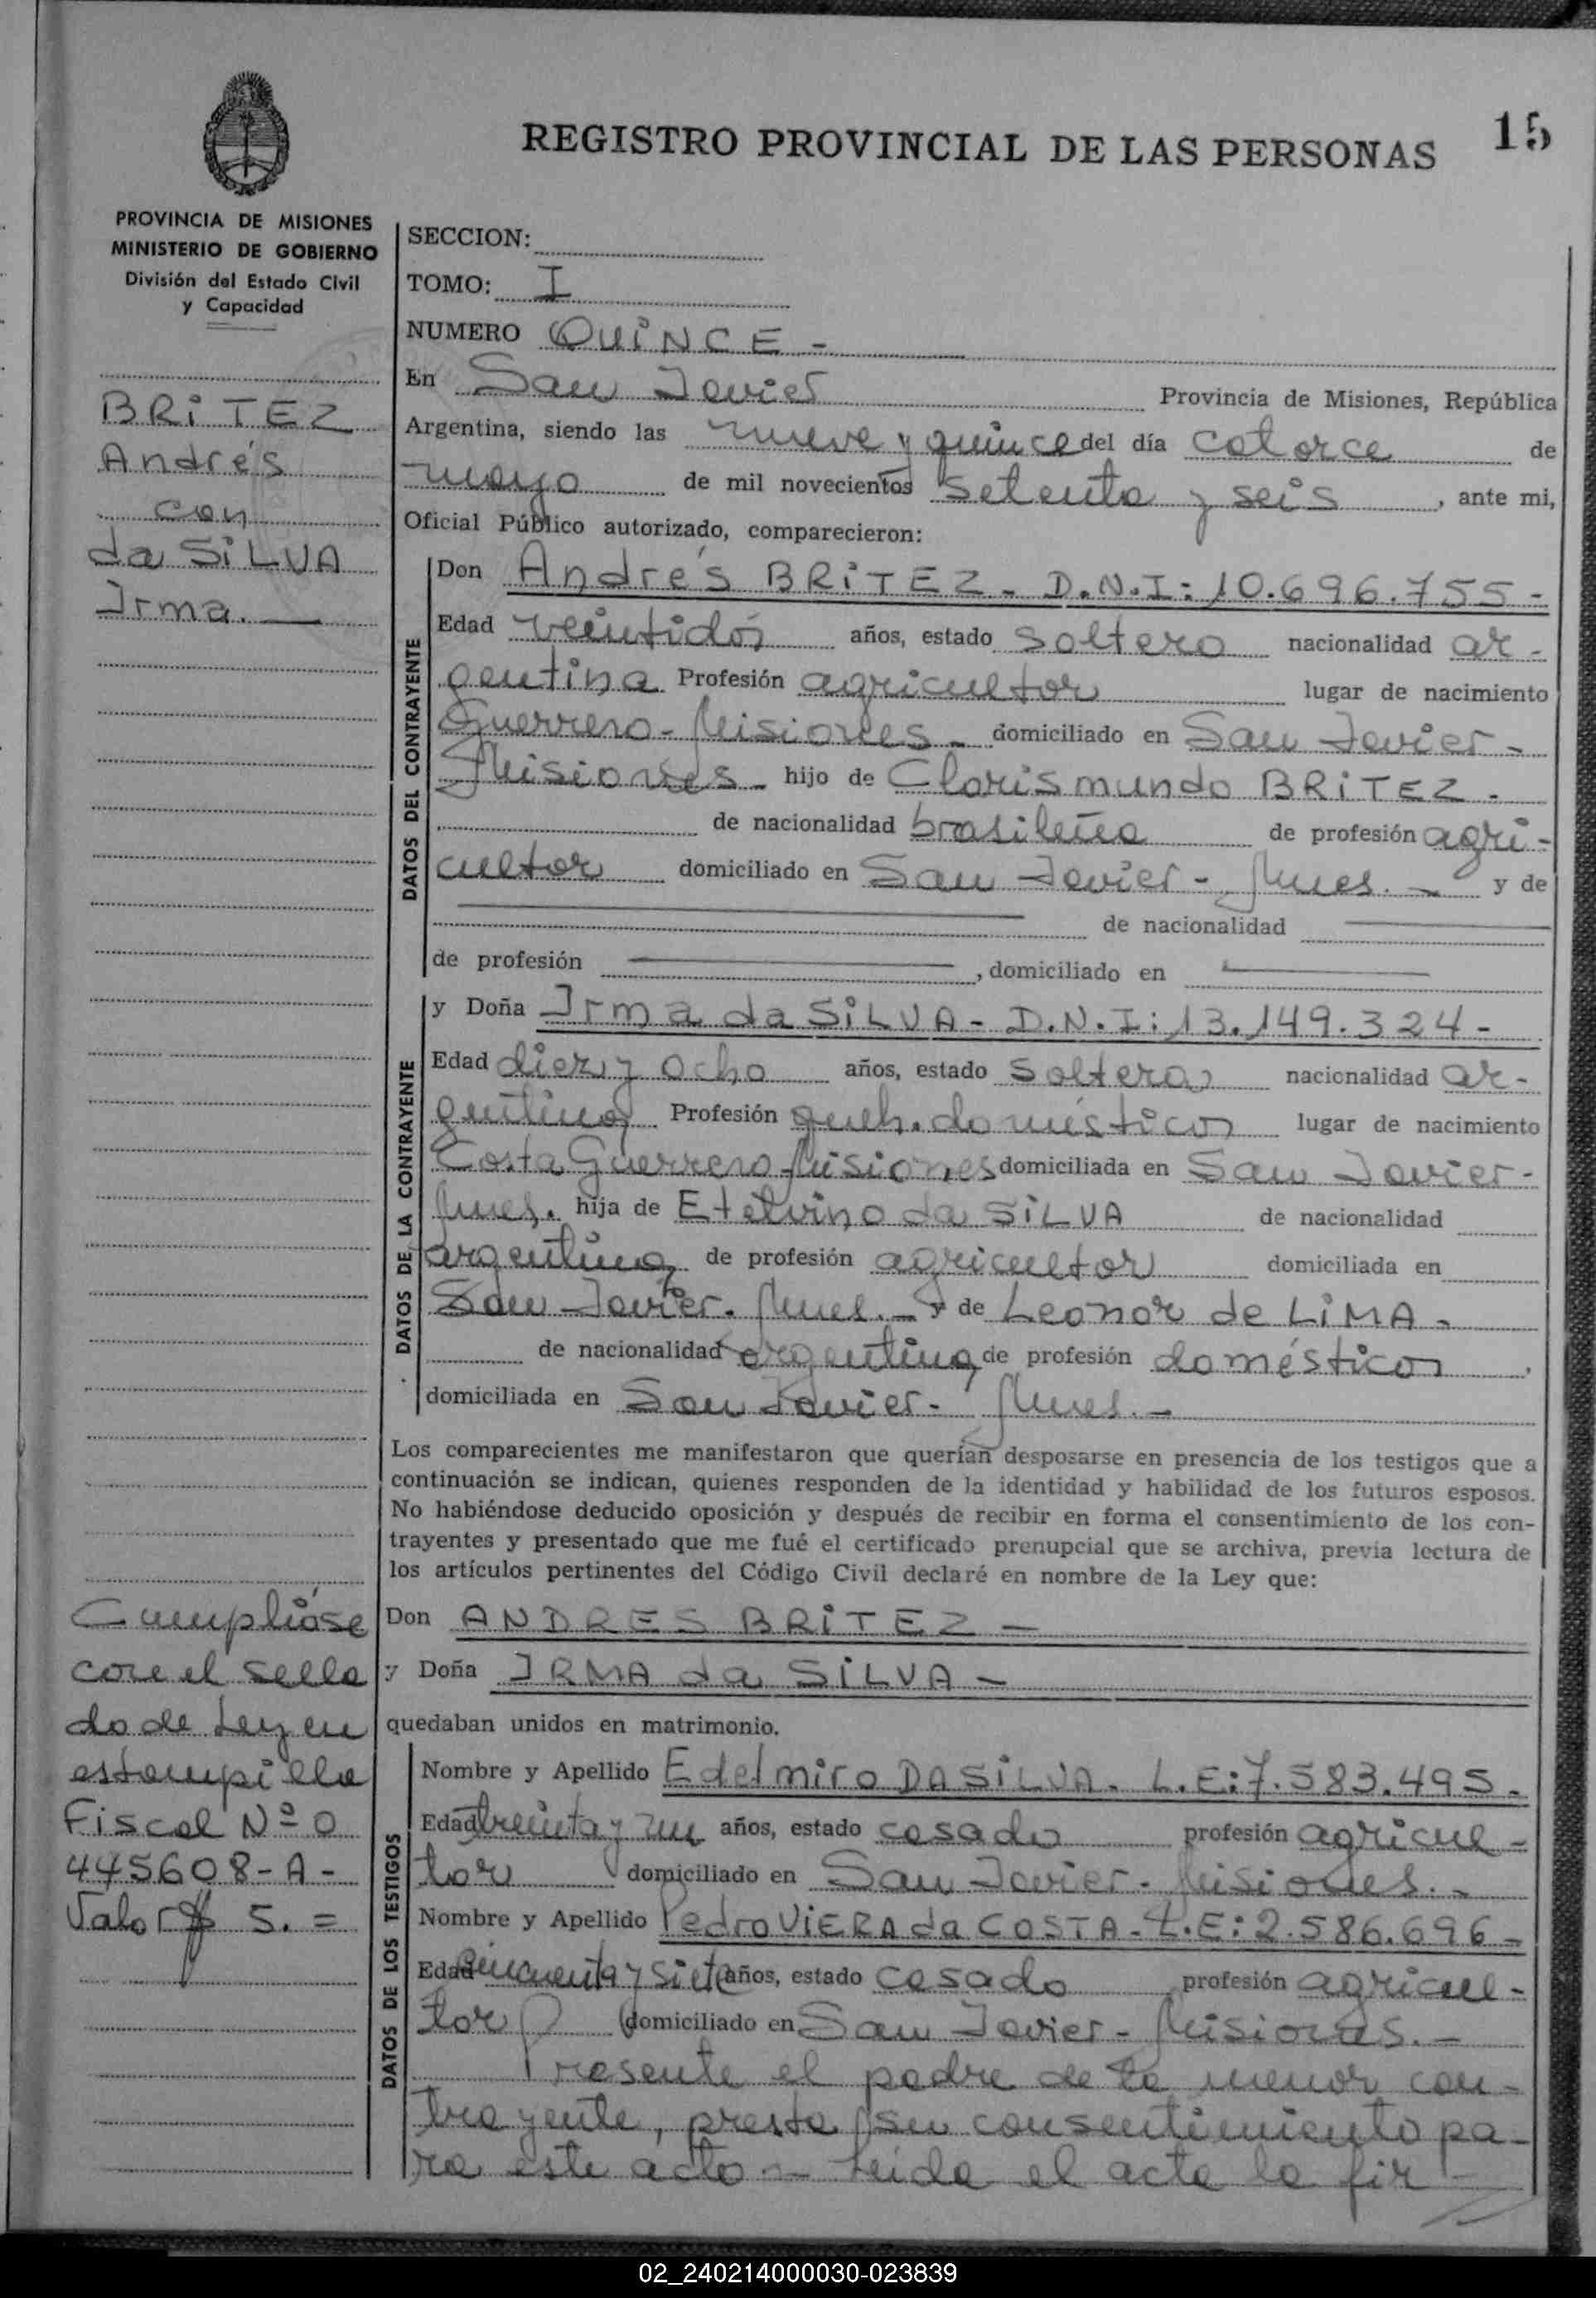 REGISTRO PROVINCIAL DE LAS PERSONAS 15
PROVINCIA DE MISIONES
MINISTERIO DE GOBIERNO
División del Estado Civil
y Capacidad
BRITEZ
Andrés
con
da SILVA
Irma.
SECCION:
TOMO: I
NUMERO QUINCE -
En San Javier Provincia de Misiones, República
Argentina, siendo las nueve y quince del día catorce de
mayo de mil novecientos setenta y seis, ante mi,
Oficial Público autorizado, comparecieron:
DATOS DEL CONTRAYENTE
Don Andrés BRITEZ - D.N.I: 10.696.755 -
Edad veintidós años, estado soltero nacionalidad ar-
gentina Profesión agricultor lugar de nacimiento
Guerrero - Misiones - domiciliado en San Javier -
Misiones - hijo de Clorismundo BRITEZ -
de nacionalidad brasileña de profesión agri-
cultor domiciliado en San Javier - Mnes. - y de
de nacionalidad
de profesión , domiciliado en
DATOS DE LA CONTRAYENTE
y Doña Irma da SILVA - D.N.I: 13.149.324 -
Edad diez y ocho años, estado soltera nacionalidad ar-
gentina Profesión queh. domésticos lugar de nacimiento
Costa Guerrero - Misiones domiciliada en San Javier -
Mnes. hija de Etelvino da SILVA de nacionalidad
argentina de profesión agricultor domiciliada en
San Javier. Mnes. - y de Leonor de LIMA -
de nacionalidad argentina de profesión domésticos
domiciliada en San Javier - Mnes. -
Los comparecientes me manifestaron que querían desposarse en presencia de los testigos que a
continuación se indican, quienes responden de la identidad y habilidad de los futuros esposos.
No habiéndose deducido oposición y después de recibir en forma el consentimiento de los con-
trayentes y presentado que me fué el certificado prenupcial que se archiva, previa lectura de
los artículos pertinentes del Código Civil declaré en nombre de la Ley que:
Don ANDRES BRITEZ -
y Doña IRMA da SILVA -
quedaban unidos en matrimonio.
Cumplióse
con el sella
do de Ley en
estampilla
Fiscal Nº 0
445608-A-
Valor $ 5. =
DATOS DE LOS TESTIGOS
Nombre y Apellido Edelmiro DA SILVA. L.E: 7.583.495 -
Edad treinta y un años, estado casado profesión agricul-
tor domiciliado en San Javier - Misiones. -
Nombre y Apellido Pedro VIERA da COSTA - L.E: 2.586.696 -
Edad cincuenta y siete años, estado casado profesión agricul-
tor domiciliado en San Javier - Misiones. -
Presente el padre de la menor con-
trayente, presta su consentimiento pa-
ra este acto - Leída el acta la fir-
02_240214000030-023839